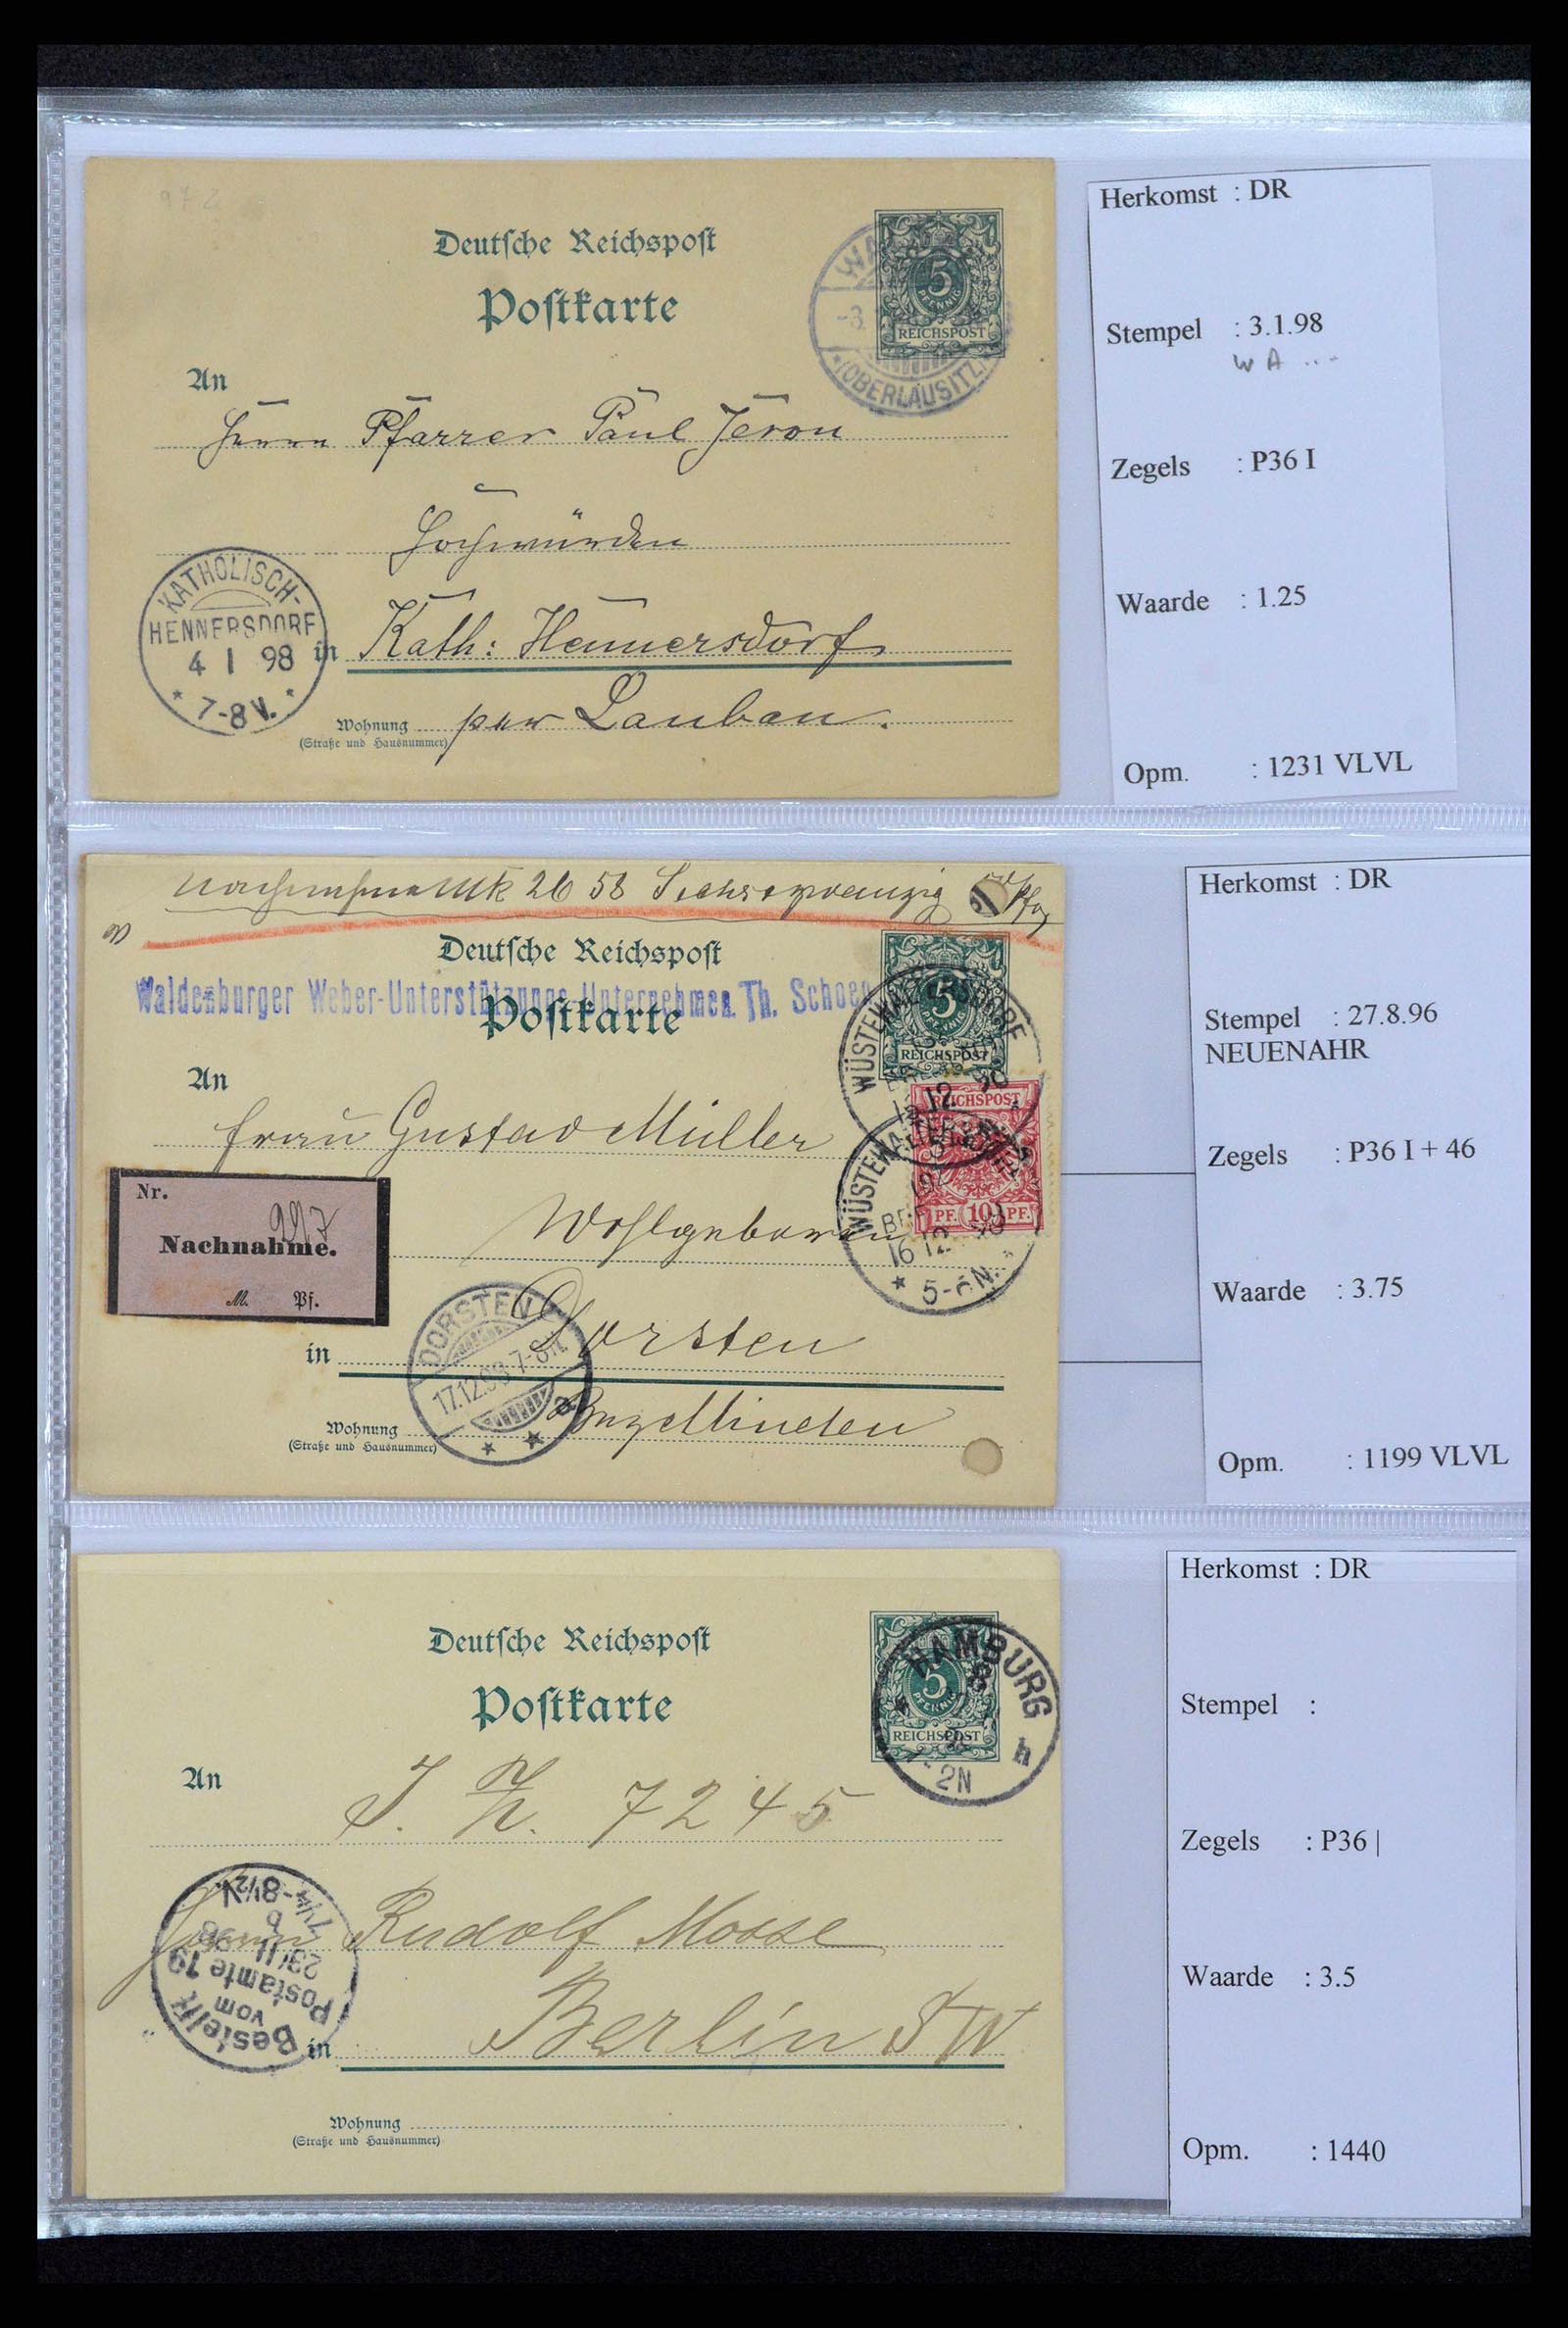 972
Deutsche Reichspost
Postkarte
5
PFENNIG
REICHSPOST
WA
-3.
(OBERLAUSITZ)
An
Herrn Pfarrer Paul Jeron
Hochwürden
KATHOLISCH-
HENNERSDORF
4 1 98
7-8 V.
in Kath: Hennersdorf
Wohnung per Lauban.
(Straße und Hausnummer)
Herkomst : DR
Stempel : 3.1.98
WA ...
Zegels : P36 I
Waarde : 1.25
Opm. : 1231 VLVL
Nachnahme Mk 26 58 Sechsundzwanzig Pfg
Deutsche Reichspost
Waldenburger Weber-Unterstützungs-Unternehmen Th. Schoen
Postkarte
5
REICHSPOST
WÜSTEWALTERSDORF
12
An
Frau Gustav Müller
REICHSPOST
PF. 10 PF.
WÜSTEWALTERSDORF
16 12
5-6 N.
Nr. 997
Nachnahme.
M. Pf.
Wohlgeboren
DORSTEN
17.12.98 7-8 N.
a
in Dorsten
Wohnung
(Straße und Hausnummer)
Herkomst : DR
Stempel : 27.8.96
NEUENAHR
Zegels : P36 I + 46
Waarde : 3.75
Opm. : 1199 VLVL
Deutsche Reichspost
Postkarte
5
PFENNIG
REICHSPOST
HAMBURG
h
1-2N
An
J. K. 7245
Herrn Rudolf Mosse
Bestellt
vom
Postamte 19
23/11 98
7¼-8½ V.
in Berlin SW
Wohnung
(Straße und Hausnummer)
Herkomst : DR
Stempel :
Zegels : P36 |
Waarde : 3.5
Opm. : 1440